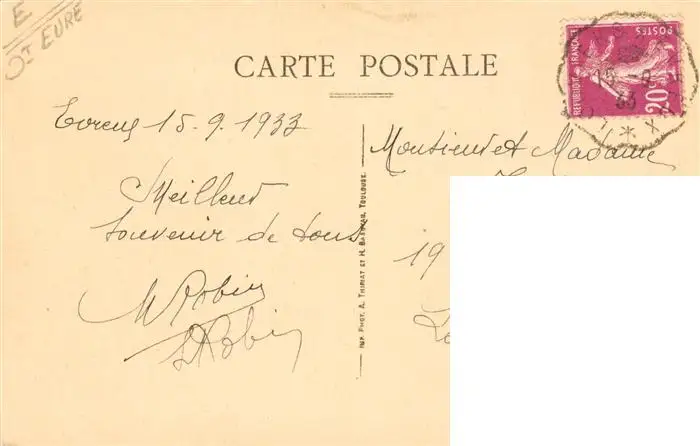 E
Dᵗ EURE
CARTE POSTALE
POSTES
REPUBLIQUE FRANÇAISE
20ᶜ
15 - 9
33
Evreux 15.9.1933
Meilleur
souvenir de tous
M Robin
Robin
IMP. PHOT. A. THIRIAT ET H. BASUYAU, TOULOUSE.
Monsieur et Madame
19